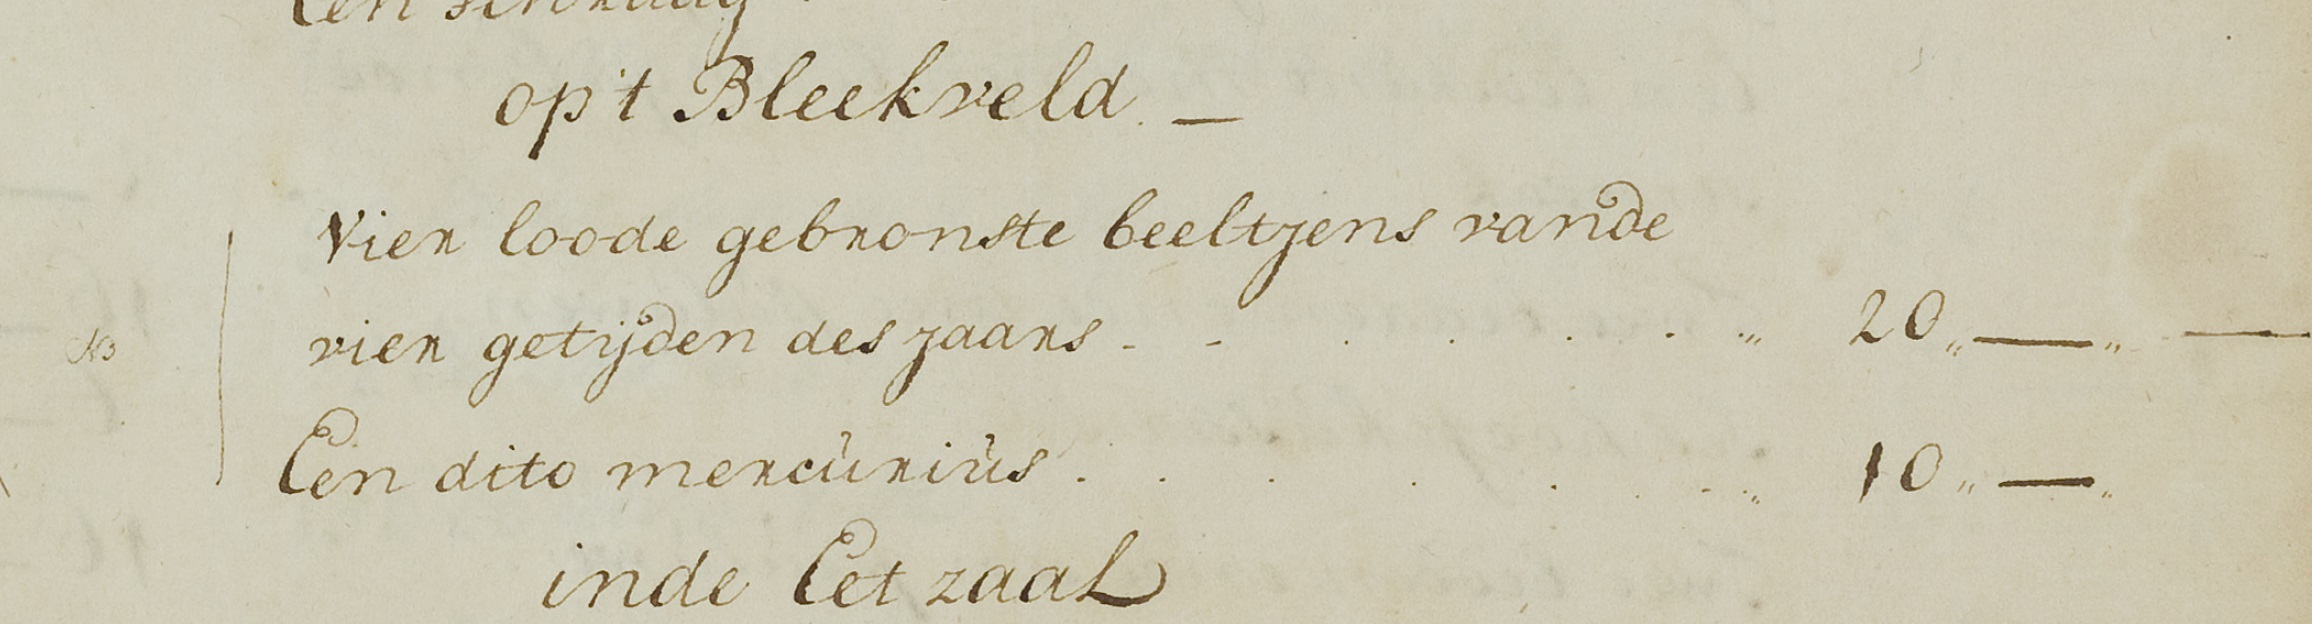 Een
op 't Bleekveld. —
Vier loode gebronste beeltjens vande
vier getijden des jaars - - . . . . „ 20„—„ —
Een dito mercurius . . . . . . - „ 10„—„
inde Eet zaal